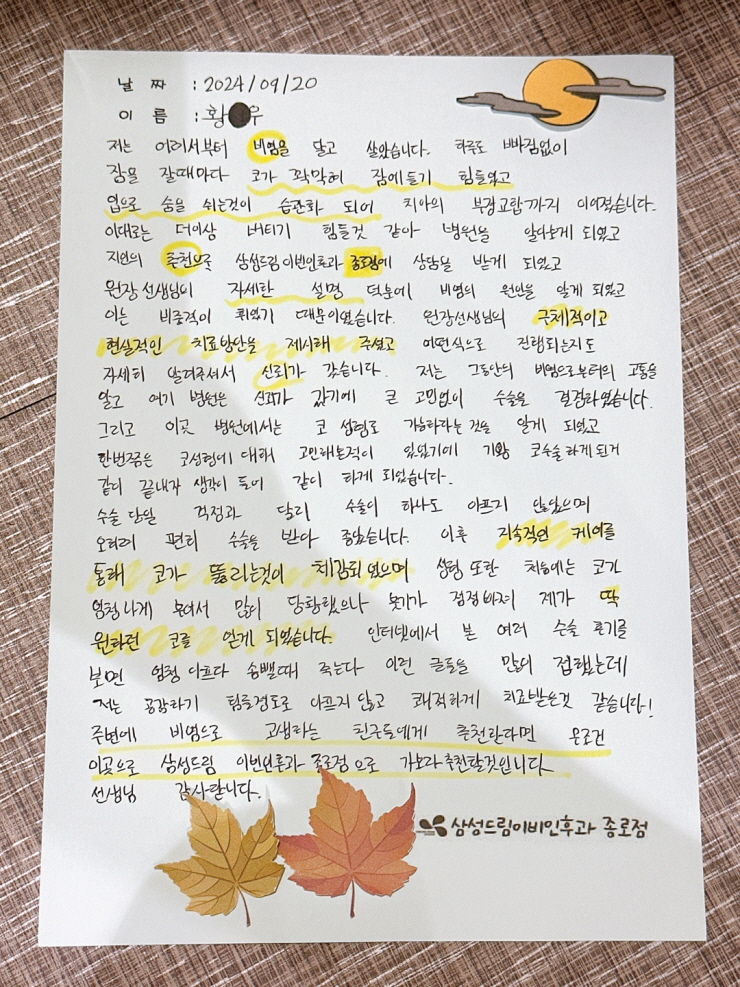 날 짜 : 2024/09/20
이 름 : 황 우
저는 어려서부터 비염을 달고 살았습니다. 하루도 빠짐없이
잠을 잘때마다 코가 꽉막혀 잠에들기 힘들었고
입으로 숨을 쉬는것이 습관화 되어 치아의 부정교합까지 이어졌습니다.
이대로는 더이상 버티기 힘들것 같아 병원을 알아보게 되었고
지인의 추천으로 삼성드림이비인후과 종로점에 상담을 받게 되었고
원장선생님이 자세한 설명 덕분에 비염의 원인을 알게 되었고
이는 비중격이 휘었기 때문이었습니다. 원장선생님의 구체적이고
현실적인 치료방안을 제시해 주셨고 어떤식으로 진행되는지도
자세히 알려주셔서 신뢰가 갔습니다. 저는 그동안의 비염으로부터의 고통을
알고 여기 병원은 신뢰가 갔기에 큰 고민없이 수술을 결정하였습니다.
그리고 이곳 병원에서는 코 성형도 가능하다는것을 알게 되었고
한번쯤은 코성형에 대해 고민해본적이 있었기에 기왕 코수술하게된거
같이 끝내자 생각이 들어 같이 하게 되었습니다.
수술 당일 걱정과 달리 수술이 하나도 아프지 않았으며
오히려 편히 수술을 받아 좋았습니다. 이후 지속적인 케어를
통해 코가 뚫리는것이 체감되었으며 성형 또한 처음에는 코가
엄청나게 부어서 많이 당황했으나 붓기가 점점빠져 제가 딱
원하던 코를 얻게 되었습니다. 인터넷에서 본 여러 수술 후기를
보면 엄청아프다 솜뺄때 죽는다 이런 글들을 많이 접했는데
저는 공감하기 힘들정도로 아프지 않고 쾌적하게 치료받은것 같습니다!
주변에 비염으로 고생하는 친구들에게 추천한다면 무조건
이곳으로 삼성드림 이비인후과 종로점으로 가보라 추천할것입니다
선생님 감사합니다.
삼성드림이비인후과 종로점